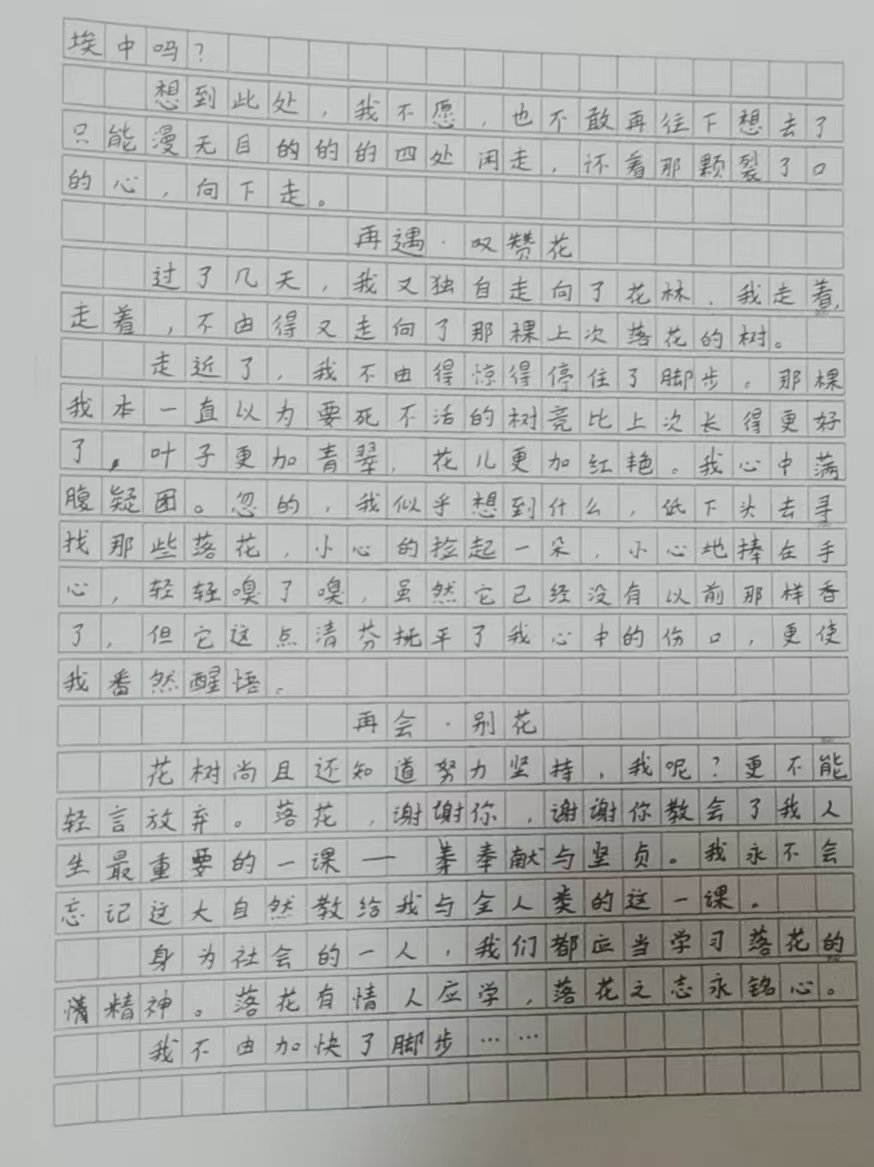 埃中吗？
想到此处，我不愿，也不敢再往下想去了
只能漫无目的的的四处闲走，怀着那颗裂了口
的心，向下走。
再遇·叹赞花
过了几天，我又独自走向了花林，我走着，
走着，不由得又走向了那棵上次落花的树。
走近了，我不由得惊得停住了脚步。那棵
我本一直以为要死不活的树竞比上次长得更好
了，叶子更加青翠，花儿更加红艳。我心中满
腹疑团。忽的，我似乎想到什么，低下头去寻
找那些落花，小心的捡起一朵，小心地捧在手
心，轻轻嗅了嗅，虽然它已经没有以前那样香
了，但它这点清芬抚平了我心中的伤口，更使
我番然醒悟。
再会·别花
花树尚且还知道努力坚持，我呢？更不能
轻言放弃。落花，谢谢你，谢谢你教会了我人
生最重要的一课—奉献与坚贞。我永不会
忘记这大自然教给我与全人类的这一课。
身为社会的一人，我们都应当学习落花的
精神。落花有情人应学，落花之志永铭心。
我不由加快了脚步……